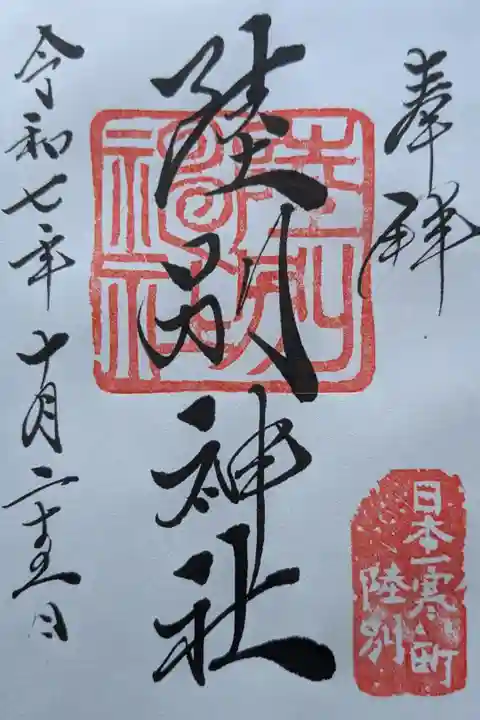 奉拝
陸別神社
陸別神社
日本一寒い町
陸別
令和七年十月二十五日